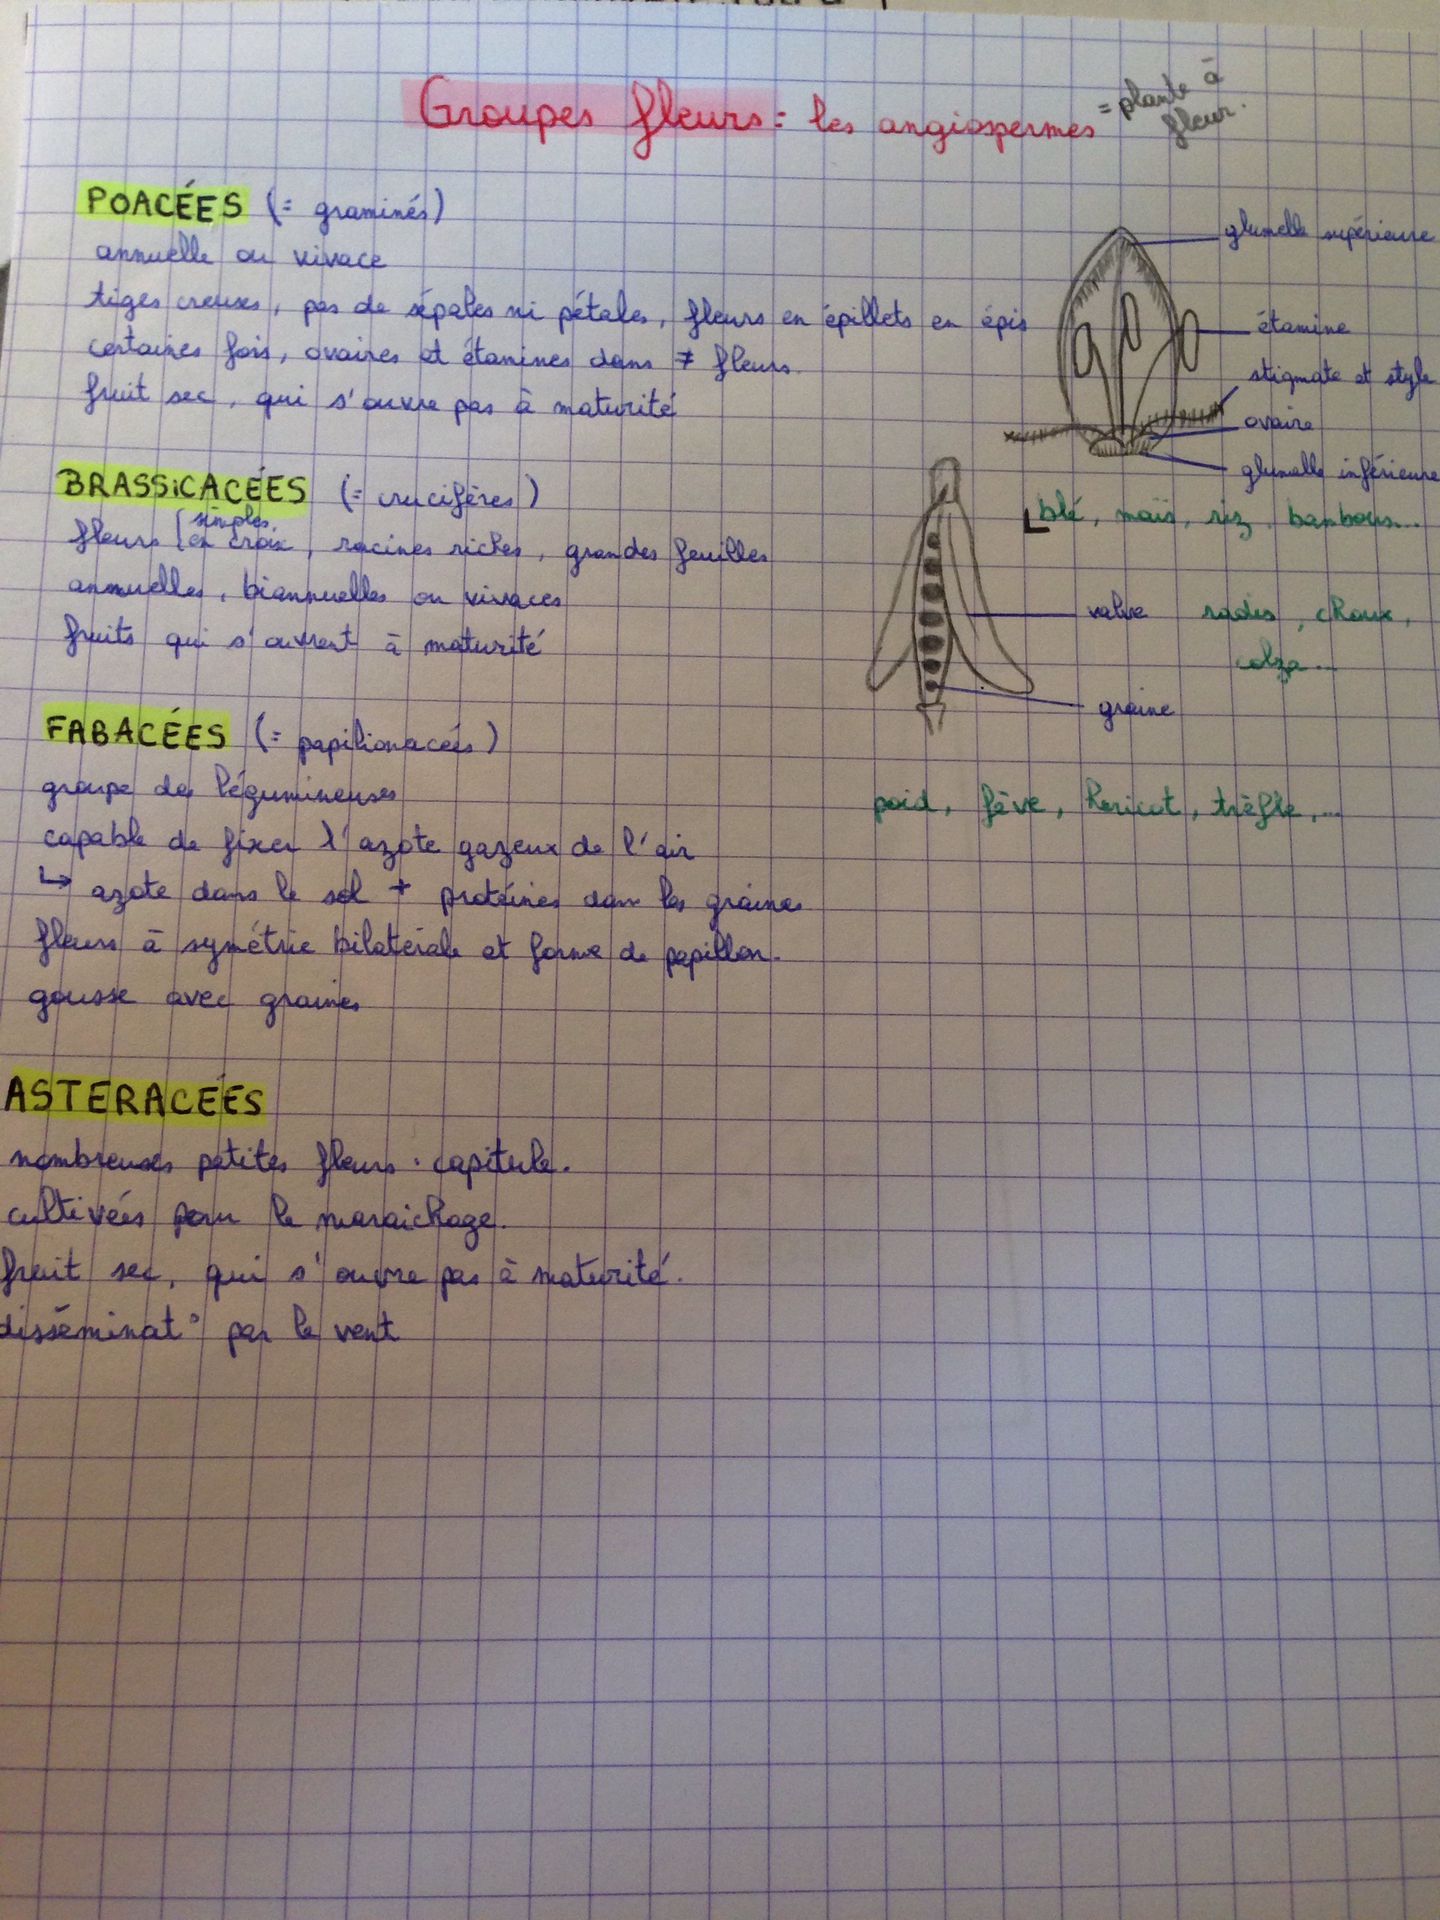 Groupes fleurs : les angiospermes = plante à
fleur.
POACÉES (= graminés)
annuelle ou vivace
tiges creuses, pas de sépales ni pétales, fleurs en épillets en épis
certaines fois, ovaires et étamines dans ≠ fleurs.
fruit sec, qui s'ouvre pas à maturité
glumelle supérieure
étamine
stigmate et style
ovaire
glumelle inférieure
blé, maïs, riz, bambous...
BRASSiCACÉES (= crucifères)
simples
fleurs en croix, racines riches, grandes feuilles
annuelles, biannuelles ou vivaces
fruits qui s'ouvrent à maturité
valve radis, choux,
colza...
graine
FABACÉES (= papilionacées)
groupe des légumineuses
capable de fixer l'azote gazeux de l'air
↳ azote dans le sol + protéines dans les graines
fleurs à symétrie bilatérale et forme de papillon.
gousse avec graines
poid, fève, haricot, trèfle,...
ASTERACÉES
nombreuses petites fleurs · capitule.
cultivées pour le maraichage.
fruit sec, qui s'ouvre pas à maturité.
disséminat° par le vent